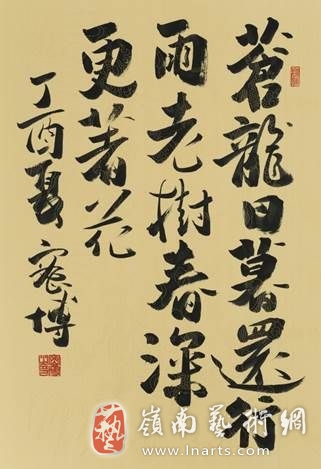 蒼龍日暮還行
雨老樹春深
更著花
丁酉夏宏博
嶺南藝術網
www.lnarts.com